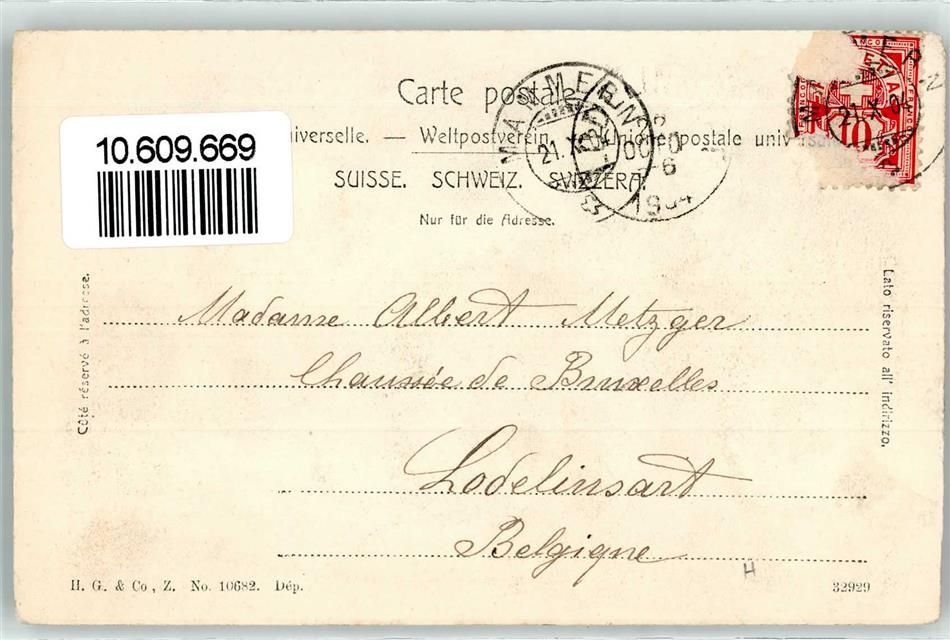 Carte postale
10.609.669
iverselle. — Weltpostverein. postale univ
SUISSE. SCHWEIZ. SVIZZERA.
Nur für die Adresse.
MAMMERN
21.X.
1904
10
FRANCO
Côté réservé à l'adresse.
Lato riservato all' indirizzo.
Madame Albert Metzger
Chaussée de Bruxelles
Lodelinsart
Belgique
H
H. G. & Co, Z. No. 10682. Dép.
32929